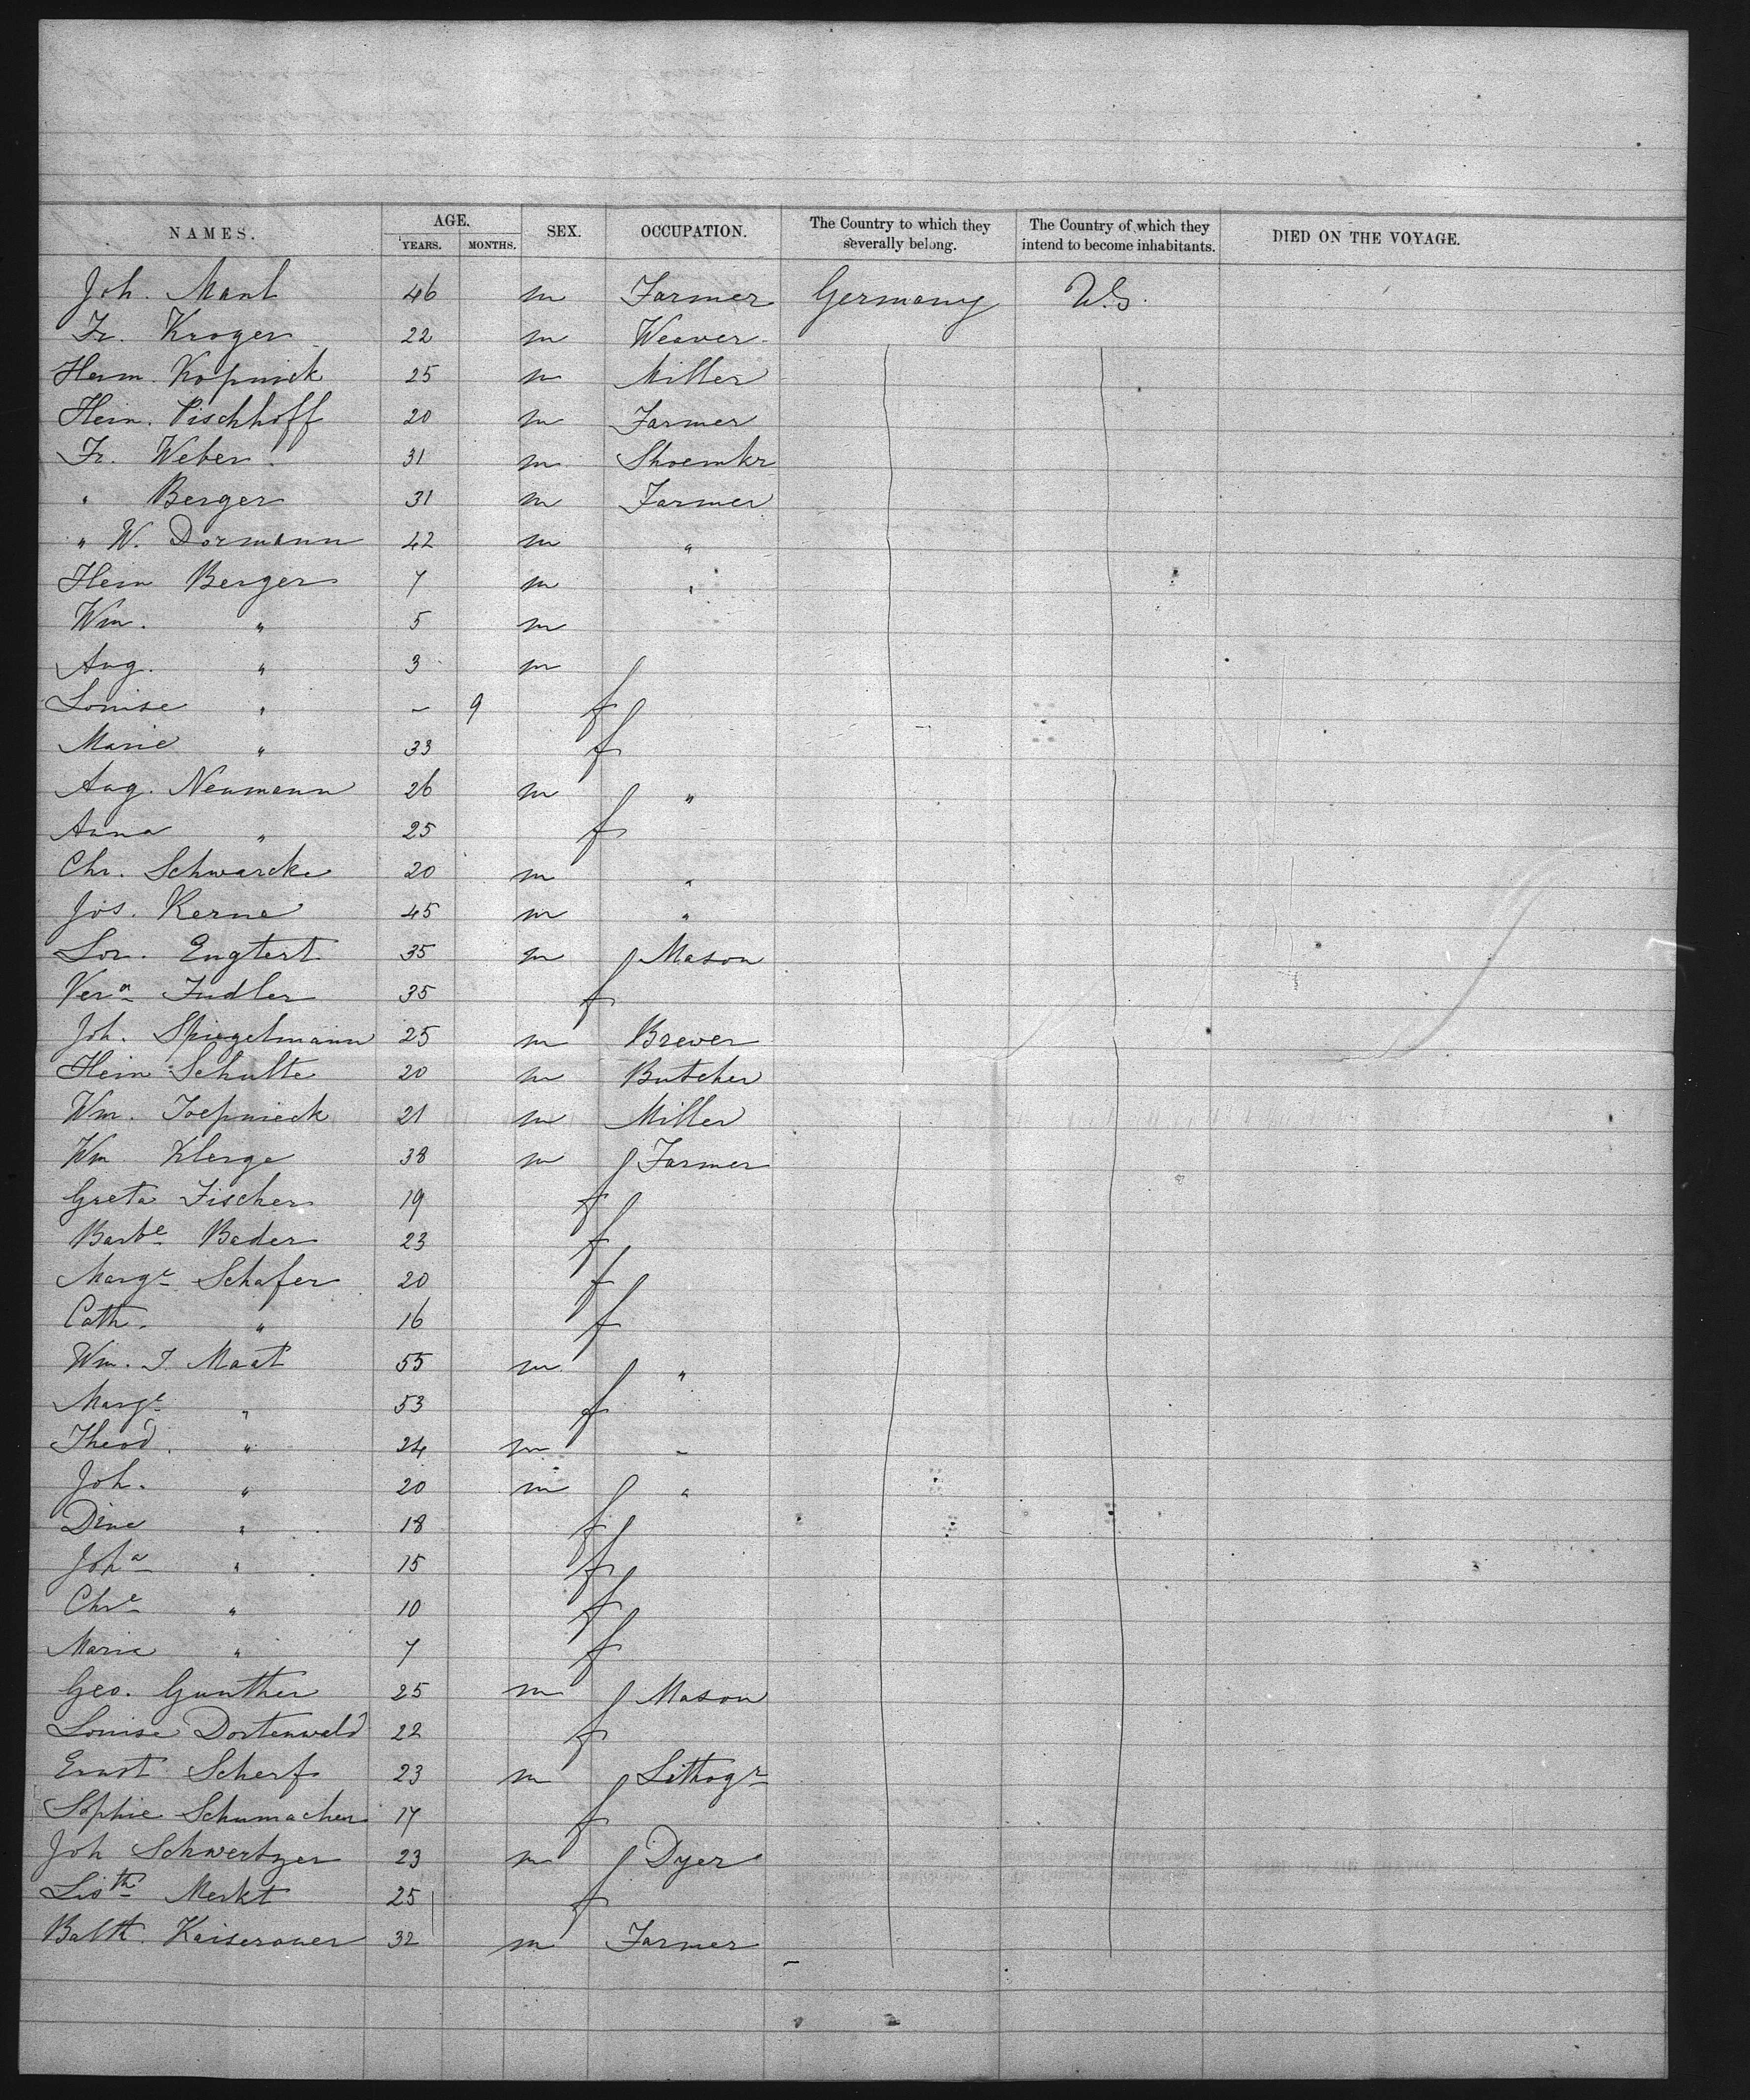 NAMES. AGE. YEARS. MONTHS. SEX. OCCUPATION. The Country to which they severally belong. The Country of which they intend to become inhabitants. DIED ON THE VOYAGE.
Joh. 46 m Farmer Germany U.S.
Fr. Kroger 22 m Weaver
Herm. Kopnick 25 m Miller
Hein. Pischhoff 20 m Farmer
Fr. Weber 31 m Shoemkr
" Berger 31 m Farmer
" W. Dormann 42 m "
Hein Berger 7 m "
Wm. " 5 m
Aug. " 3 m
Louise " – 9 f
Marie " 33 f
Aug. Neumann 26 m "
Anna " 25 f
Chr. Schwarcke 20 m "
Jos. Kerne 45 m "
Lor. Engtert 35 m Mason
Vera 35 f
Joh. Spiegelmann 25 m Brewer
Hein Schulte 20 m Butcher
Wm. 21 m Miller
Wm Klerge 38 m Farmer
Greta Fischer 19 f
Barbe Bader 23 f
Marge Schafer 20 f
Cath. " 16 f
Wm. J. Maat 55 m "
Marge " 53 f
Theod. " 24 m "
Joh. " 20 m "
Dine " 18 f
Joha " 15 f
Chre " 10 f
Maria " 7 f
Geo. Gunther 25 m Mason
Louise Dortenweld 22 f
Ernst Scherf 23 m Lithogr
Sophie Schumacher 17 f
Joh Schwertzer 23 m Dyer
Listh Merkt 25 f
Balth. Kaiserauer 32 m Farmer